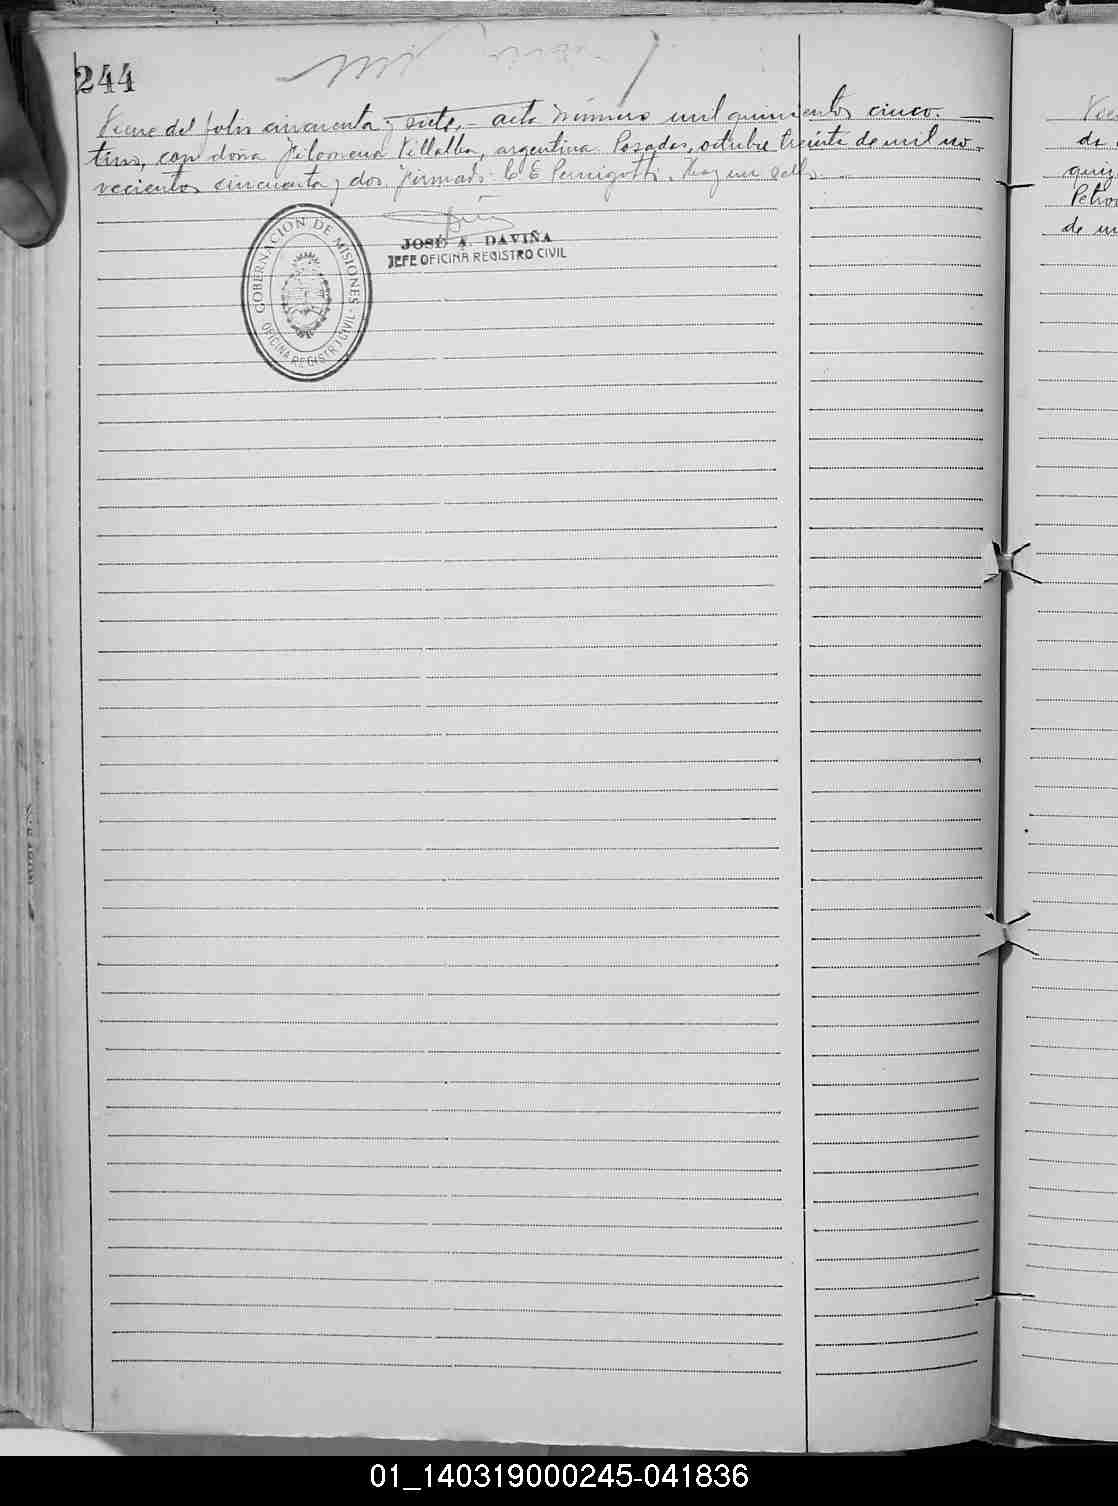 244
Viene del folio cincuenta y siete, - acta número mil quinientos cinco.
tino, con doña Filomena Villalba, argentina. Posadas, octubre treinta de mil no-
vecientos cincuenta y dos. Firmado: C E Pernigotti. Hay un sello
GOBERNACION DE MISIONES
OFICINA REGISTRO CIVIL
JOSÉ A. DAVIÑA
JEFE OFICINA REGISTRO CIVIL
da
Petro
de m
01_140319000245-041836